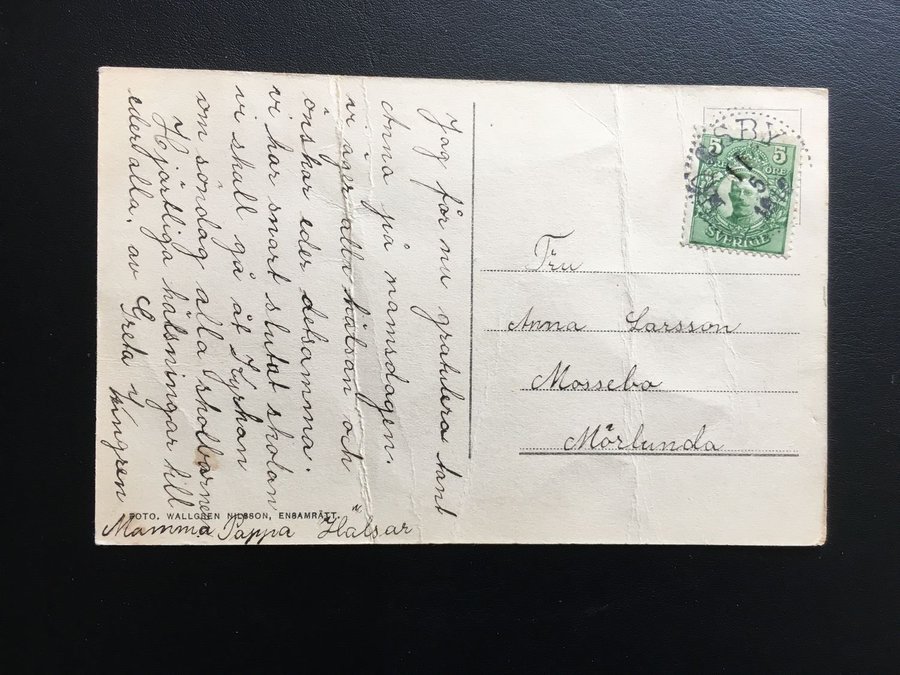 Jag får nu gratulera tant
Anna på namsdagen.
vi äga alla hälsan och
önskar eder detsamma.
vi har snart slutat skolan
vi skull gå åt Kyrkan
om söndag alla skolbarnen
Hjärtliga hälsningar till
eder alla. av Greta
Mamma Pappa Halsar
FOTO. WALLGREN NILSSON, ENSAMRÄTT.
5 5
ÖRE
SVERIGE
5
Fru
Anna Larsson
Mossebo
Mörlunda